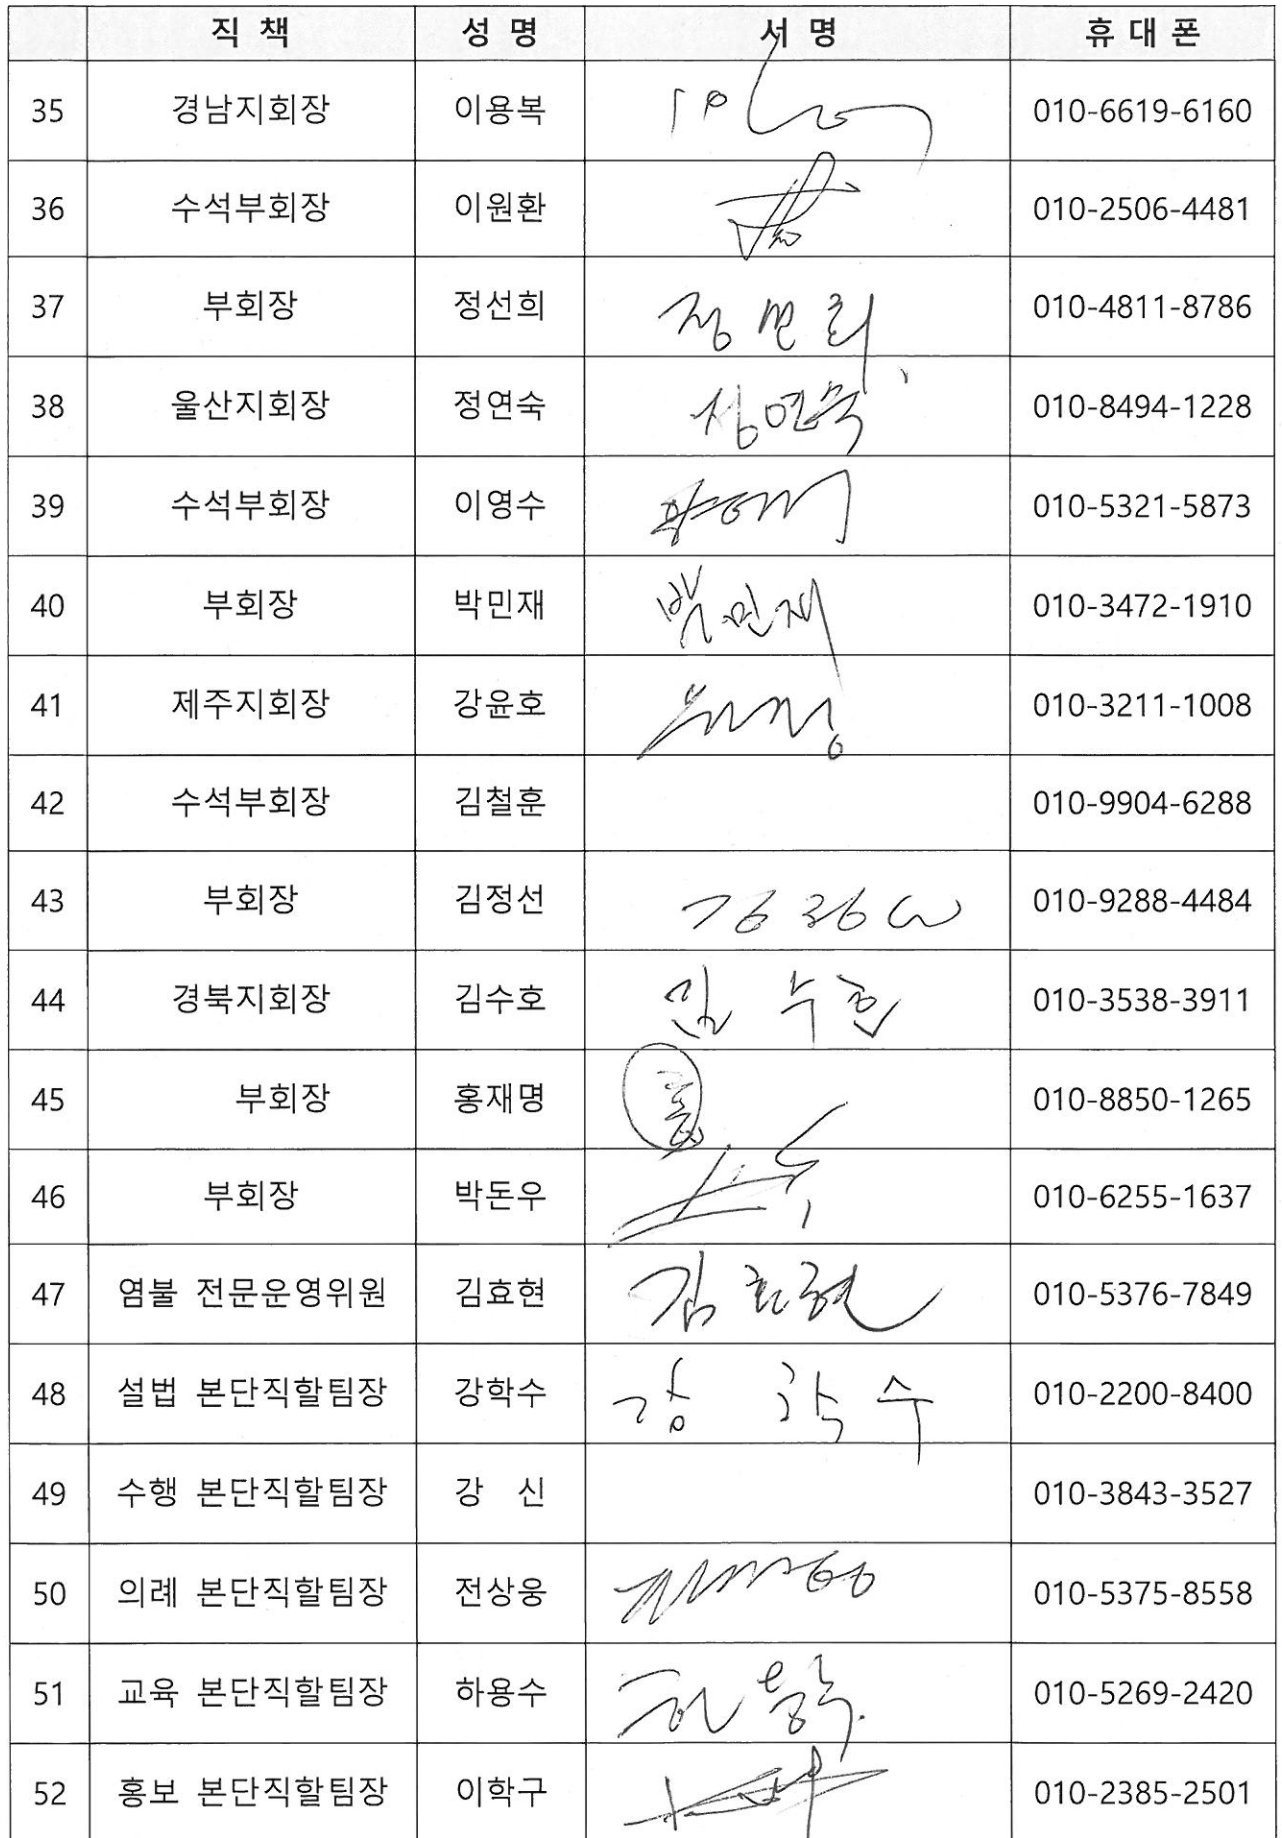 직 책 성 명 서 명 휴 대 폰
35 경남지회장 이용복 010-6619-6160
36 수석부회장 이원환 010-2506-4481
37 부회장 정선희 정선희 010-4811-8786
38 울산지회장 정연숙 정연숙 010-8494-1228
39 수석부회장 이영수 010-5321-5873
40 부회장 박민재 박민재 010-3472-1910
41 제주지회장 강윤호 010-3211-1008
42 수석부회장 김철훈 010-9904-6288
43 부회장 김정선 010-9288-4484
44 경북지회장 김수호 김수호 010-3538-3911
45 부회장 홍재명 010-8850-1265
46 부회장 박돈우 010-6255-1637
47 염불 전문운영위원 김효현 김효현 010-5376-7849
48 설법 본단직할팀장 강학수 강학수 010-2200-8400
49 수행 본단직할팀장 강 신 010-3843-3527
50 의례 본단직할팀장 전상웅 010-5375-8558
51 교육 본단직할팀장 하용수 하용수 010-5269-2420
52 홍보 본단직할팀장 이학구 010-2385-2501